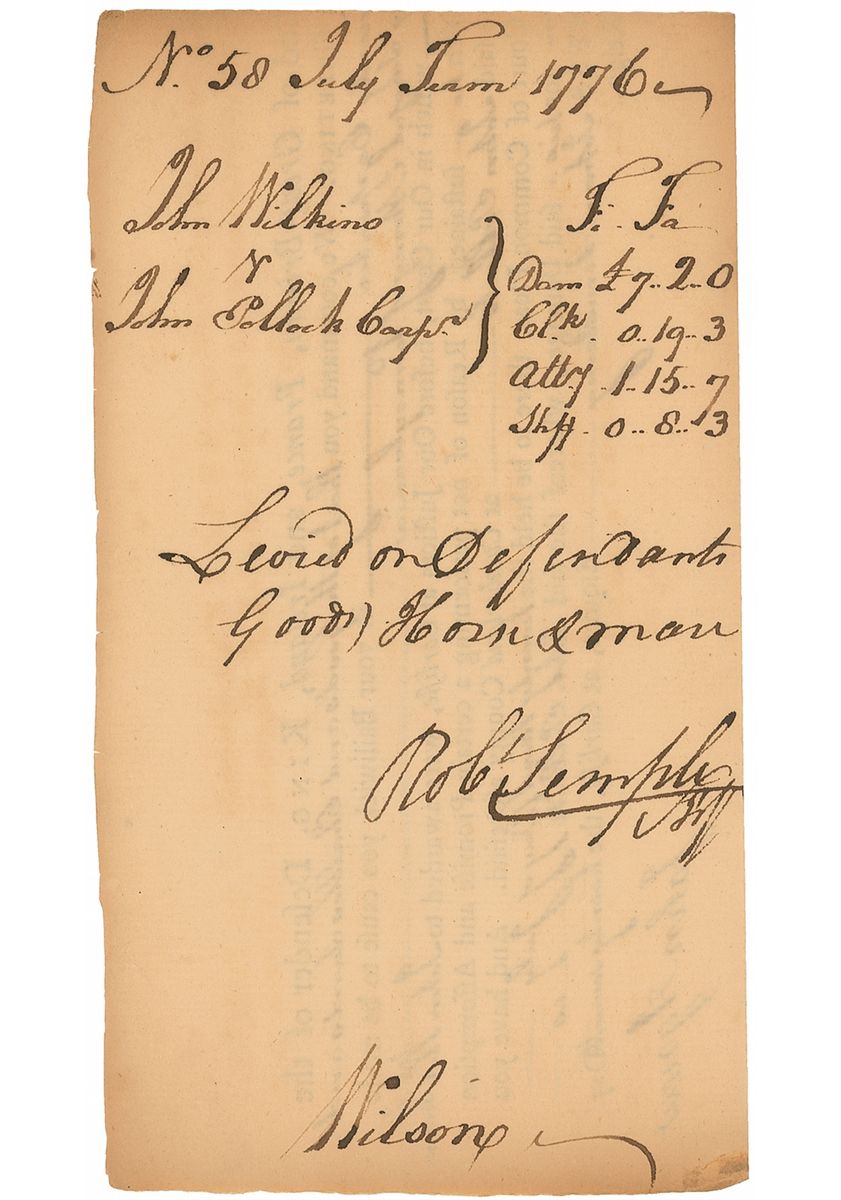 No. 58 July Term 1776
John Wilkins
v
John Pollock Carpr.
Fi. Fa
Dam £7..2..0
Clk. 0..19..3
Atty. 1..15..7
Shff. 0..8..3
Levied on Defendants
Goods) Horse & mare
Robt Semple
Shff
Wilson